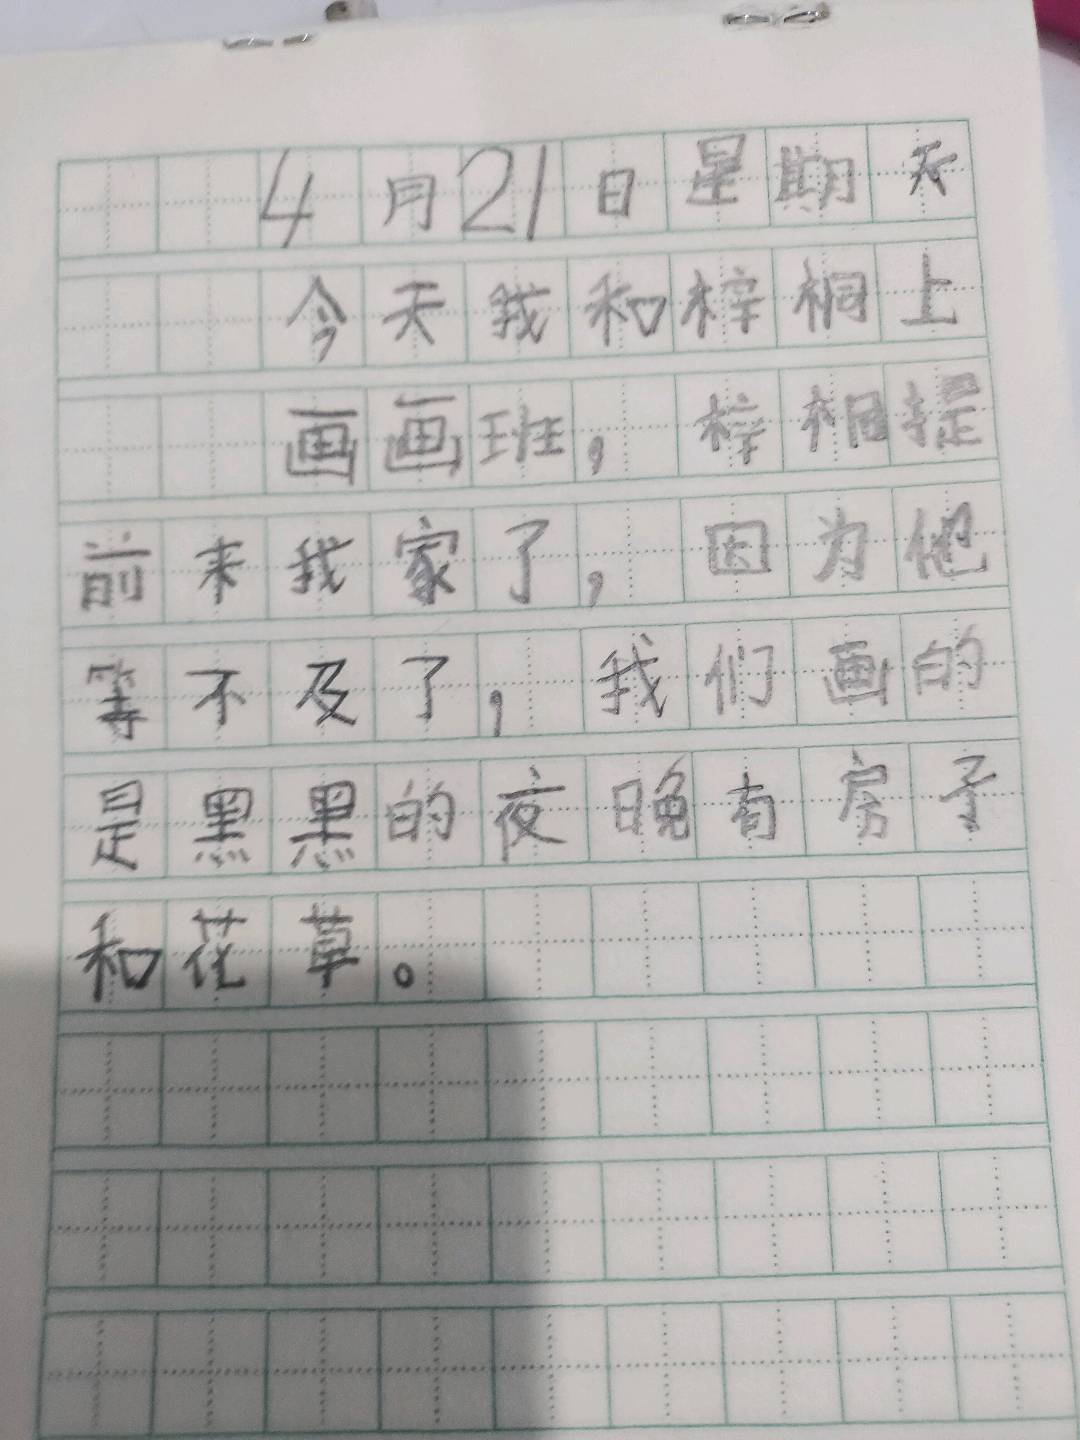 4月21日星期天
今天我和梓桐上
画画班，梓桐提
前来我家了，因为他
等不及了，我们画的
是黑黑的夜晚有房子
和花草。